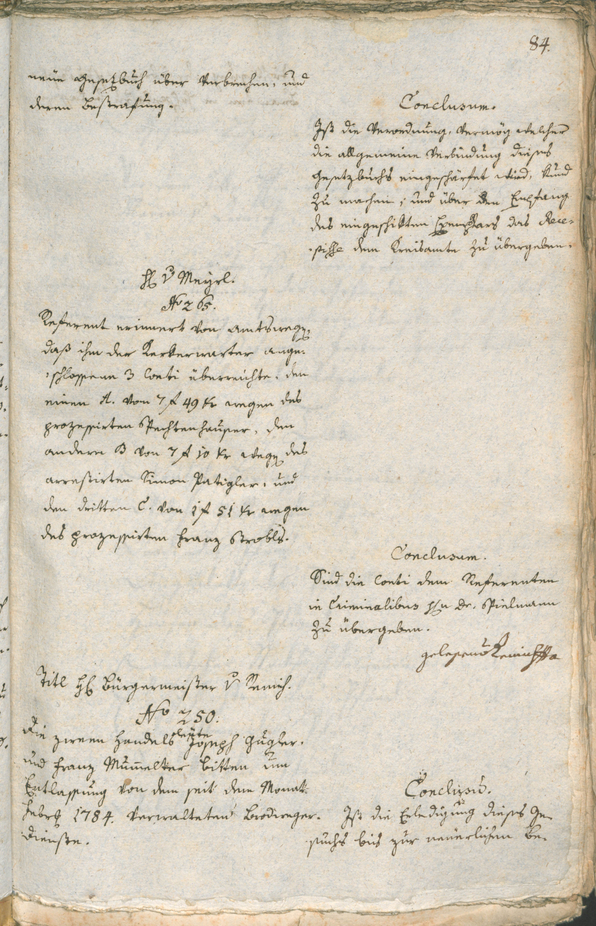 84.
neüe Gesetzbuch über Verbrechen, und
deren Bestrafung.
Conclusum.
Ist die Verordnung, vermög welcher
die allgemeine Verbindung dieses
Gesetzbuchs eingeschärfet wird, kund
zu machen; und über den Empfang
des eingeschikten Exemplars das Rece-
pisse dem Kreisamte zu übergeben.
H v Meyrl.
No 265.
Referent erinnert von amtswegen,
daß ihm der Kerkerwarter ange-
schlossene 3 Conti überreichte, den
einen A. von 7 f 49 kr wegen des
prozessirten Spechtenhauser, den
andern B von 7 f 10 kr wegen des
arrestirten Simon Patigler, und
den dritten C. von 1 f 51 kr wegen
des prozessirten Franz Strobls.
Conclusum.
Sind die Conti dem Referenten
in Criminalibus Hn Dr. Spielmann
zu übergeben.
gelesen
Titl H Bürgermeister v Remich.
No 250.
Die zween Handelsleute Joseph Gugler.
und Franz Mummelter bitten um
Entlassung von dem seit dem Monat
Febr 1784 verwalteten
dienste.
Conclusum.
Ist die Erledigung dieses Ge-
suchs bis zur neuerlichen Be-